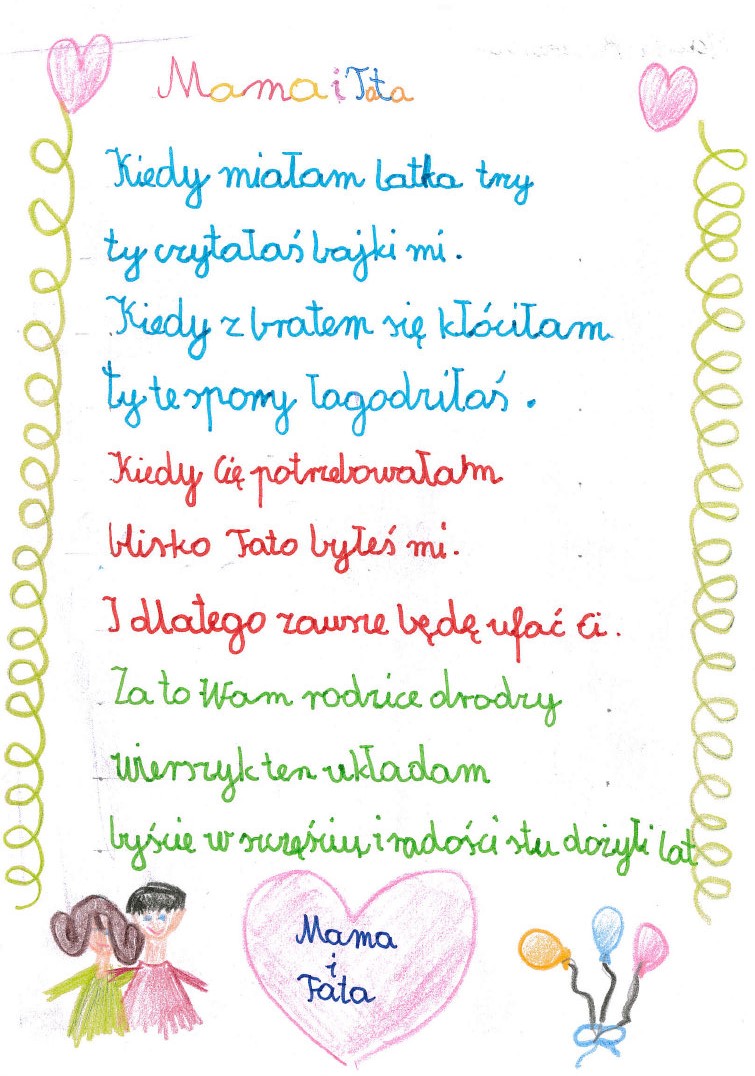 Mama i Tata
Kiedy miałam latka trzy
ty czytałaś bajki mi.
Kiedy z bratem się kłóciłam
Ty te spory łagodziłaś.
Kiedy Cię potrzebowałam
blisko Tato byłeś mi.
I dlatego zawsze będę ufać Ci.
Za to Wam rodzice drodzy
wierszyk ten układam
byście w szczęściu i radości stu dożyli lat
Mama
i
Tata